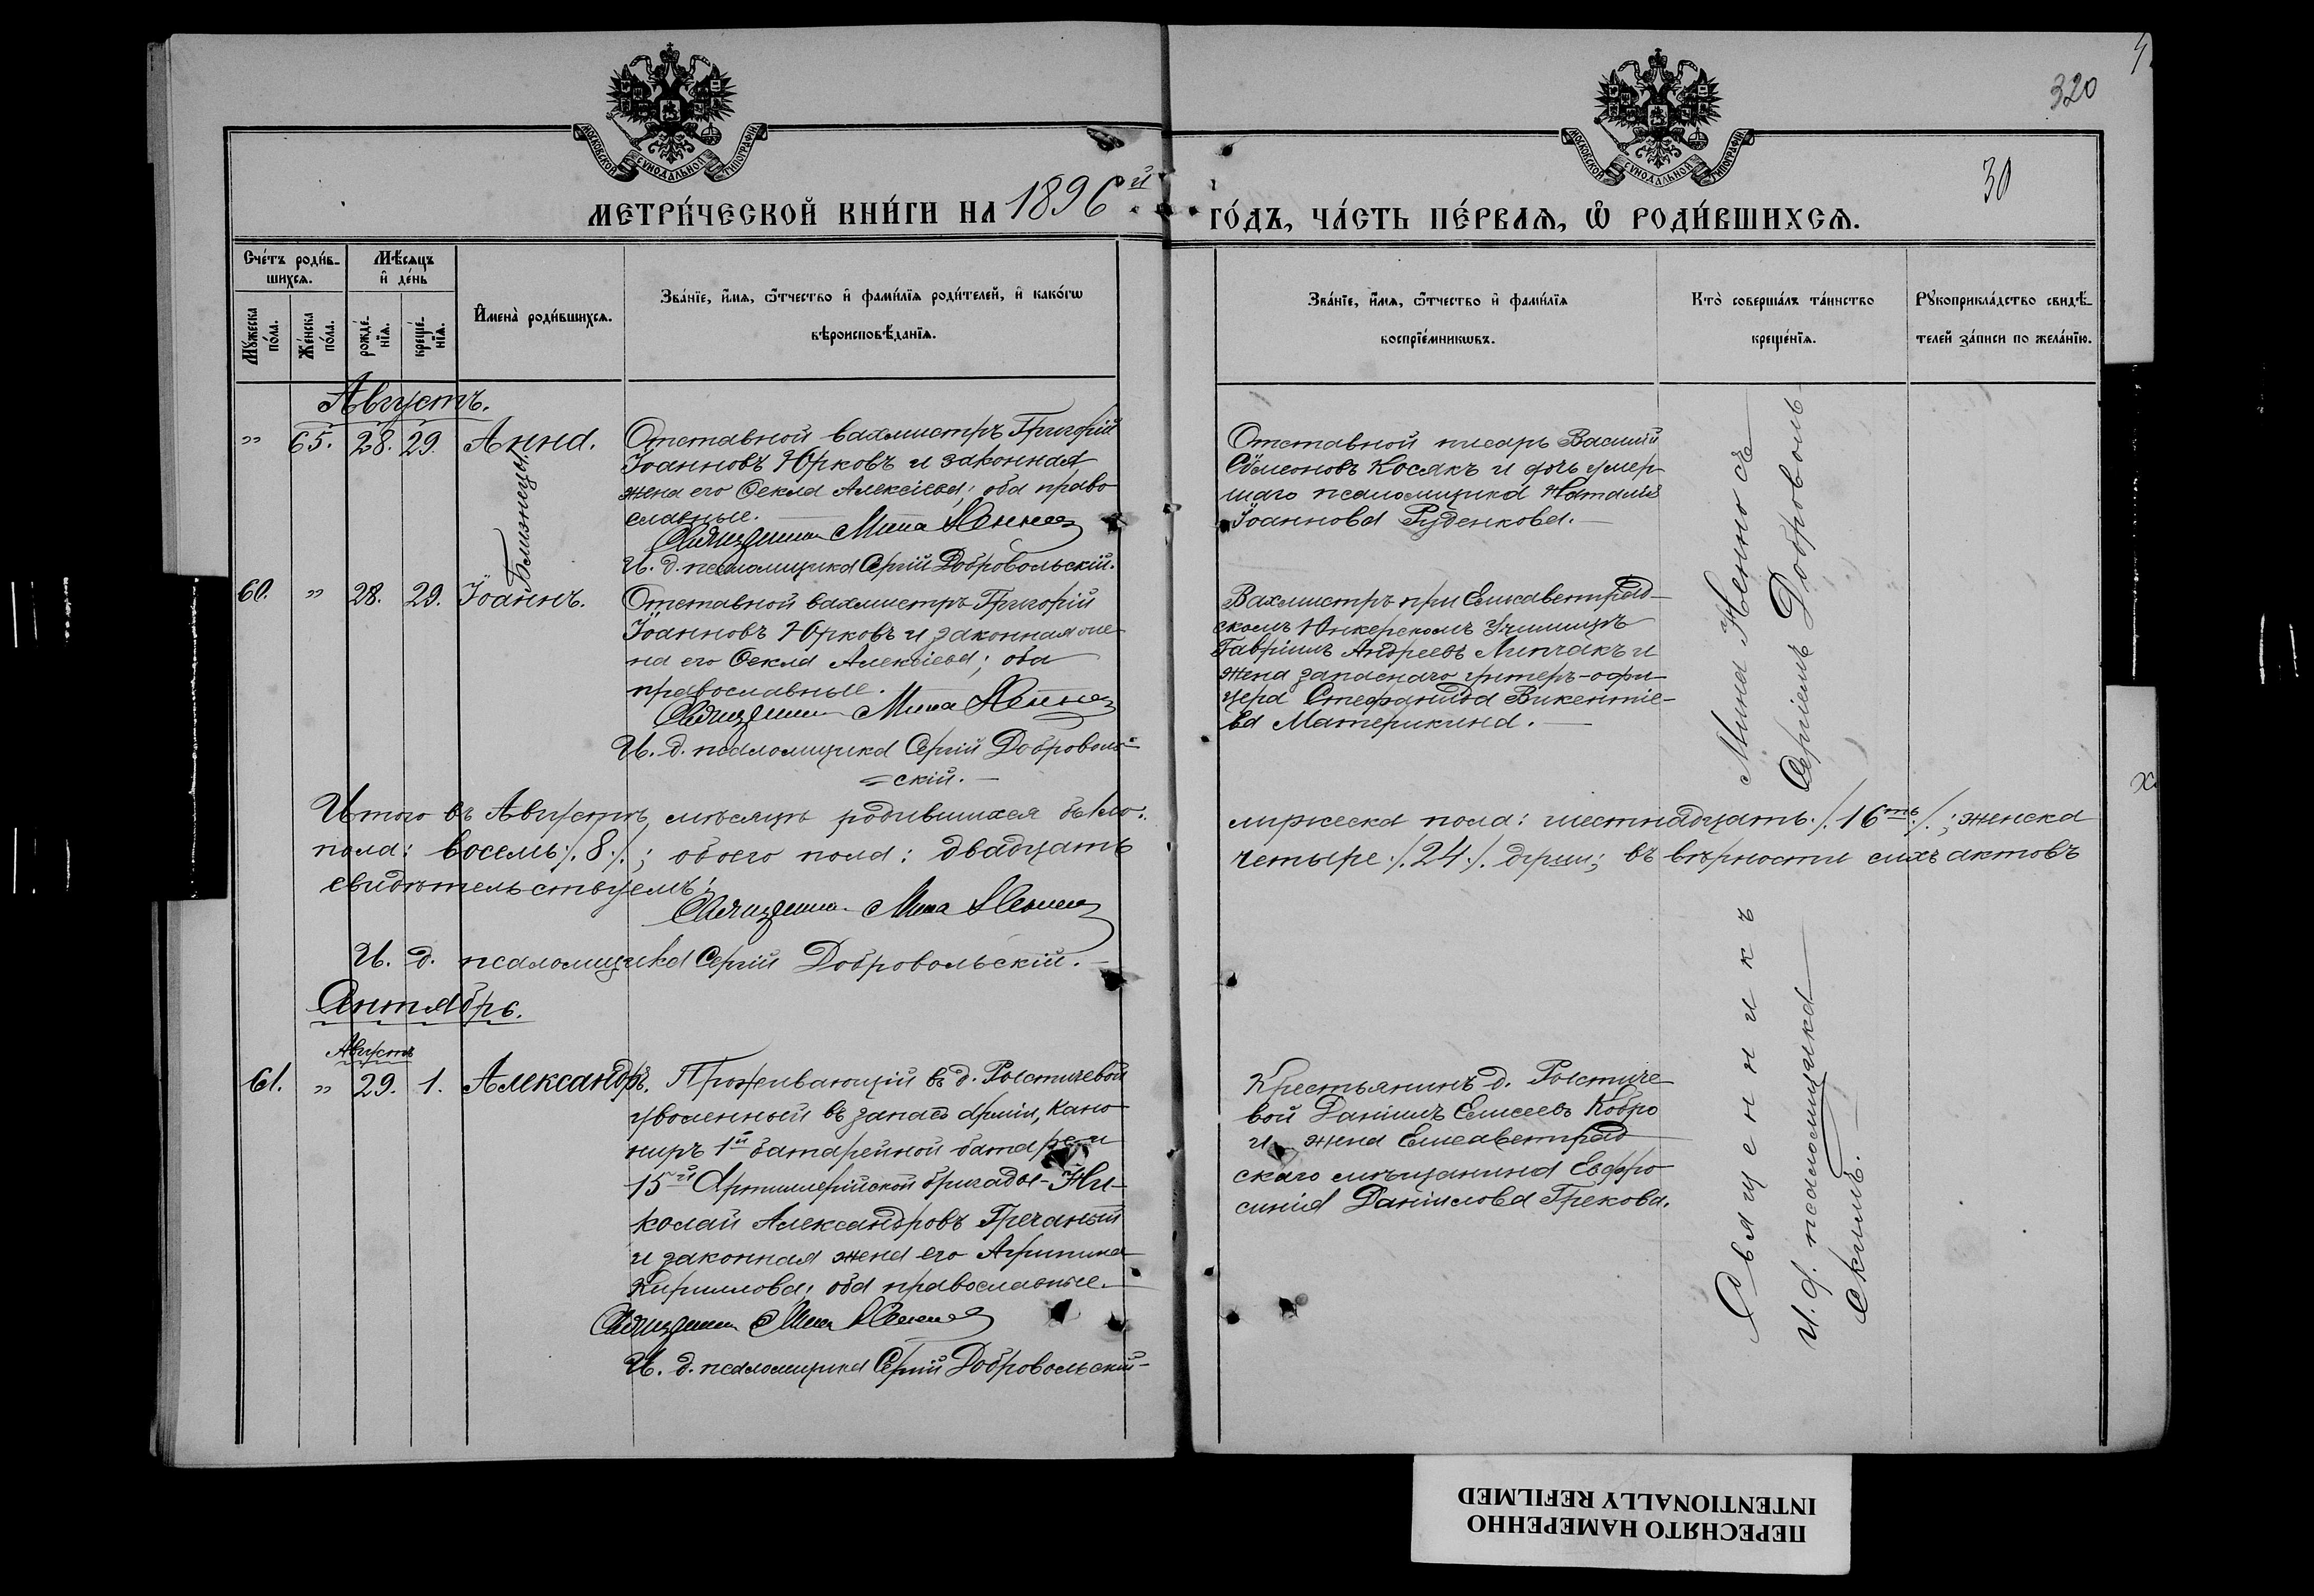 320
30
МОСКОВСКОЙ СѴНОДАЛЬНОЙ ТИПОГРАФІИ
МОСКОВСКОЙ СѴНОДАЛЬНОЙ ТИПОГРАФІИ
МЕТРИ́ЧЕСКОЙ КНИ́ГИ НА 1896й
ГО́ДЪ, ЧА́СТЬ ПЕ́РВАѦ, Ѡ҆ РОДИ́ВШИХСѦ.
Сче́тъ роди́в-
шихсѧ.
Мꙋ́жеска по́ла.
Же́нска по́ла.
Мѣ́сѧцъ
и҆ де́нь
рожде́-
нїѧ.
креще́-
нїѧ.
И҆мена̀ роди́вшихсѧ.
Зва́нїе, и҆́мѧ, ѻ҆́тчество и҆ фами́лїѧ роди́телей, и҆ како́гѡ
вѣроисповѣ́данїѧ.
Зва́нїе, и҆́мѧ, ѻ҆́тчество и҆ фами́лїѧ
воспрїе́мникѡвъ.
Кто̀ соверша́лъ та́инство
креще́нїѧ.
Рꙋкоприкла́дство свидѣ́-
телей за́писи по жела́нїю.
Августъ.
" 65. 28. 29. Анна.
Близнецы.
Отставной вахмистръ Григорій
Іоанновъ Юрковъ и законная
жена его Ѳекла Алексіева; оба право
славные.
Священникъ Мина
И. д. псаломщика Сергій Добровольскій.
Отставной писарь Василій
Сѵмеоновъ Косякъ и дочь умер
шаго псаломщика Наталія
Іоаннова Руденкова.
60. " 28. 29. Іоаннъ.
Отставной вахмистръ Григорій
Іоанновъ Юрковъ и законная же
на его Ѳекла Алексіева; оба
православные.
Священникъ Мина
И. д. псаломщика Сергій Доброволь-
скій.
Вахмистръ при Елисаветград-
скомъ Юнкерскомъ Училищѣ
Гавріилъ Андреевъ Липчакъ и
жена запаснаго унтеръ-офи-
цера Стефанида Викентіе-
ва Материкина.
Итого въ Августѣ мѣсяцѣ родившихся было:
мужеска пола: шестнадцать ./. 16ть ./.; женска
пола: восемь ./. 8 ./.; обоего пола: двадцать
четыре ./. 24 ./. души; въ вѣрности сихъ актовъ
свидѣтельствуемъ:
Священникъ Мина
И. д. псаломщика Сергій Добровольскій.
Сентябрь.
Августъ
61. " 29. 1. Александръ.
Проживающій въ д. Ростичевой
уволенный въ запасъ арміи, кано
ниръ 1й батарейной батареи
15й Артиллерійской бригады Ни-
колай Александровъ Гречаный
и законная жена его Агрипина
Кириллова; оба православные.
Священникъ Мина
И. д. псаломщика Сергій Добровольскій
Крестьянинъ д. Ростиче
вой Даніилъ Елисеевъ Кобро
и жена Елисаветград
скаго мѣщанина Евфро
синія Даніилова Грекова.
Священникъ Мина
И. д. псаломщика Сергіемъ Доброволь
скимъ.
ПЕРЕСНЯТО НАМЕРЕННО
INTENTIONALLY REFILMED